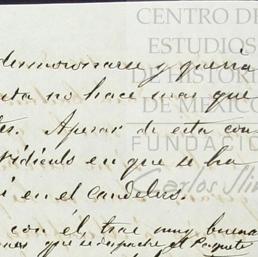 CENTRO DE
ESTUDIOS
DE HISTORIA
DE MÉXICO
FUNDACIÓN
Carlos Slim
desmoronarse y queria
no hace mas que
Apesar de esta con
ridículo en que se ha
en el candelero.
con él trae muy buena
que se despache el Paquete